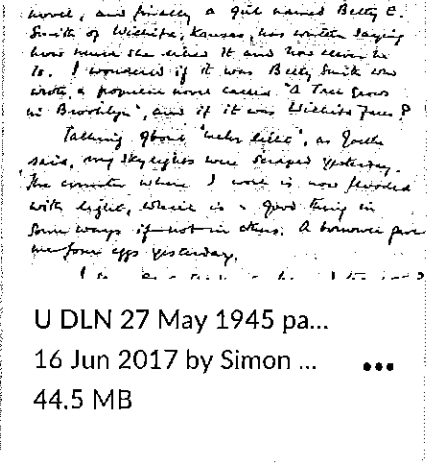 novel, and finally a girl named Betty E.
Smith of Wichita, Kansas, has written saying
how much she liked it and how clever he
is. I wondered if it was Betty Smith who
wrote a popular novel called "A Tree Grows
in Brooklyn", and if it was Wichita Falls?
Talking about "mehr licht", as Goethe
said, my skylights were scraped yesterday.
The counter where I work is now flooded
with light, which is a good thing in
some ways if not in others. A borrower gave
me four eggs yesterday.
U DLN 27 May 1945 pa...
16 Jun 2017 by Simon ...
44.5 MB